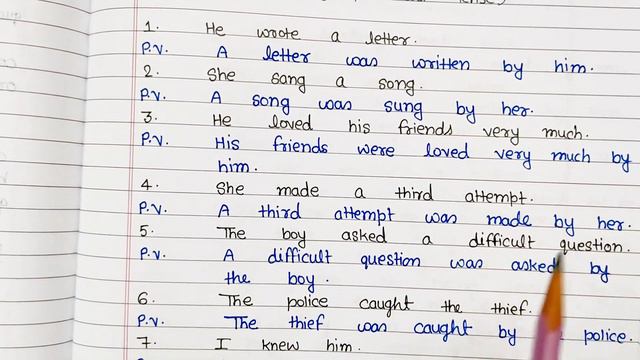 1. He wrote a letter.
P.V. A letter was written by him.
2. She sang a song.
P.V. A song was sung by her.
3. He loved his friends very much.
P.V. His friends were loved very much by
him.
4. She made a third attempt.
P.V. A third attempt was made by her.
5. The boy asked a difficult question.
P.V. A difficult question was asked by
the boy.
6. The police caught the thief.
P.V. The thief was caught by police.
7. I knew him.